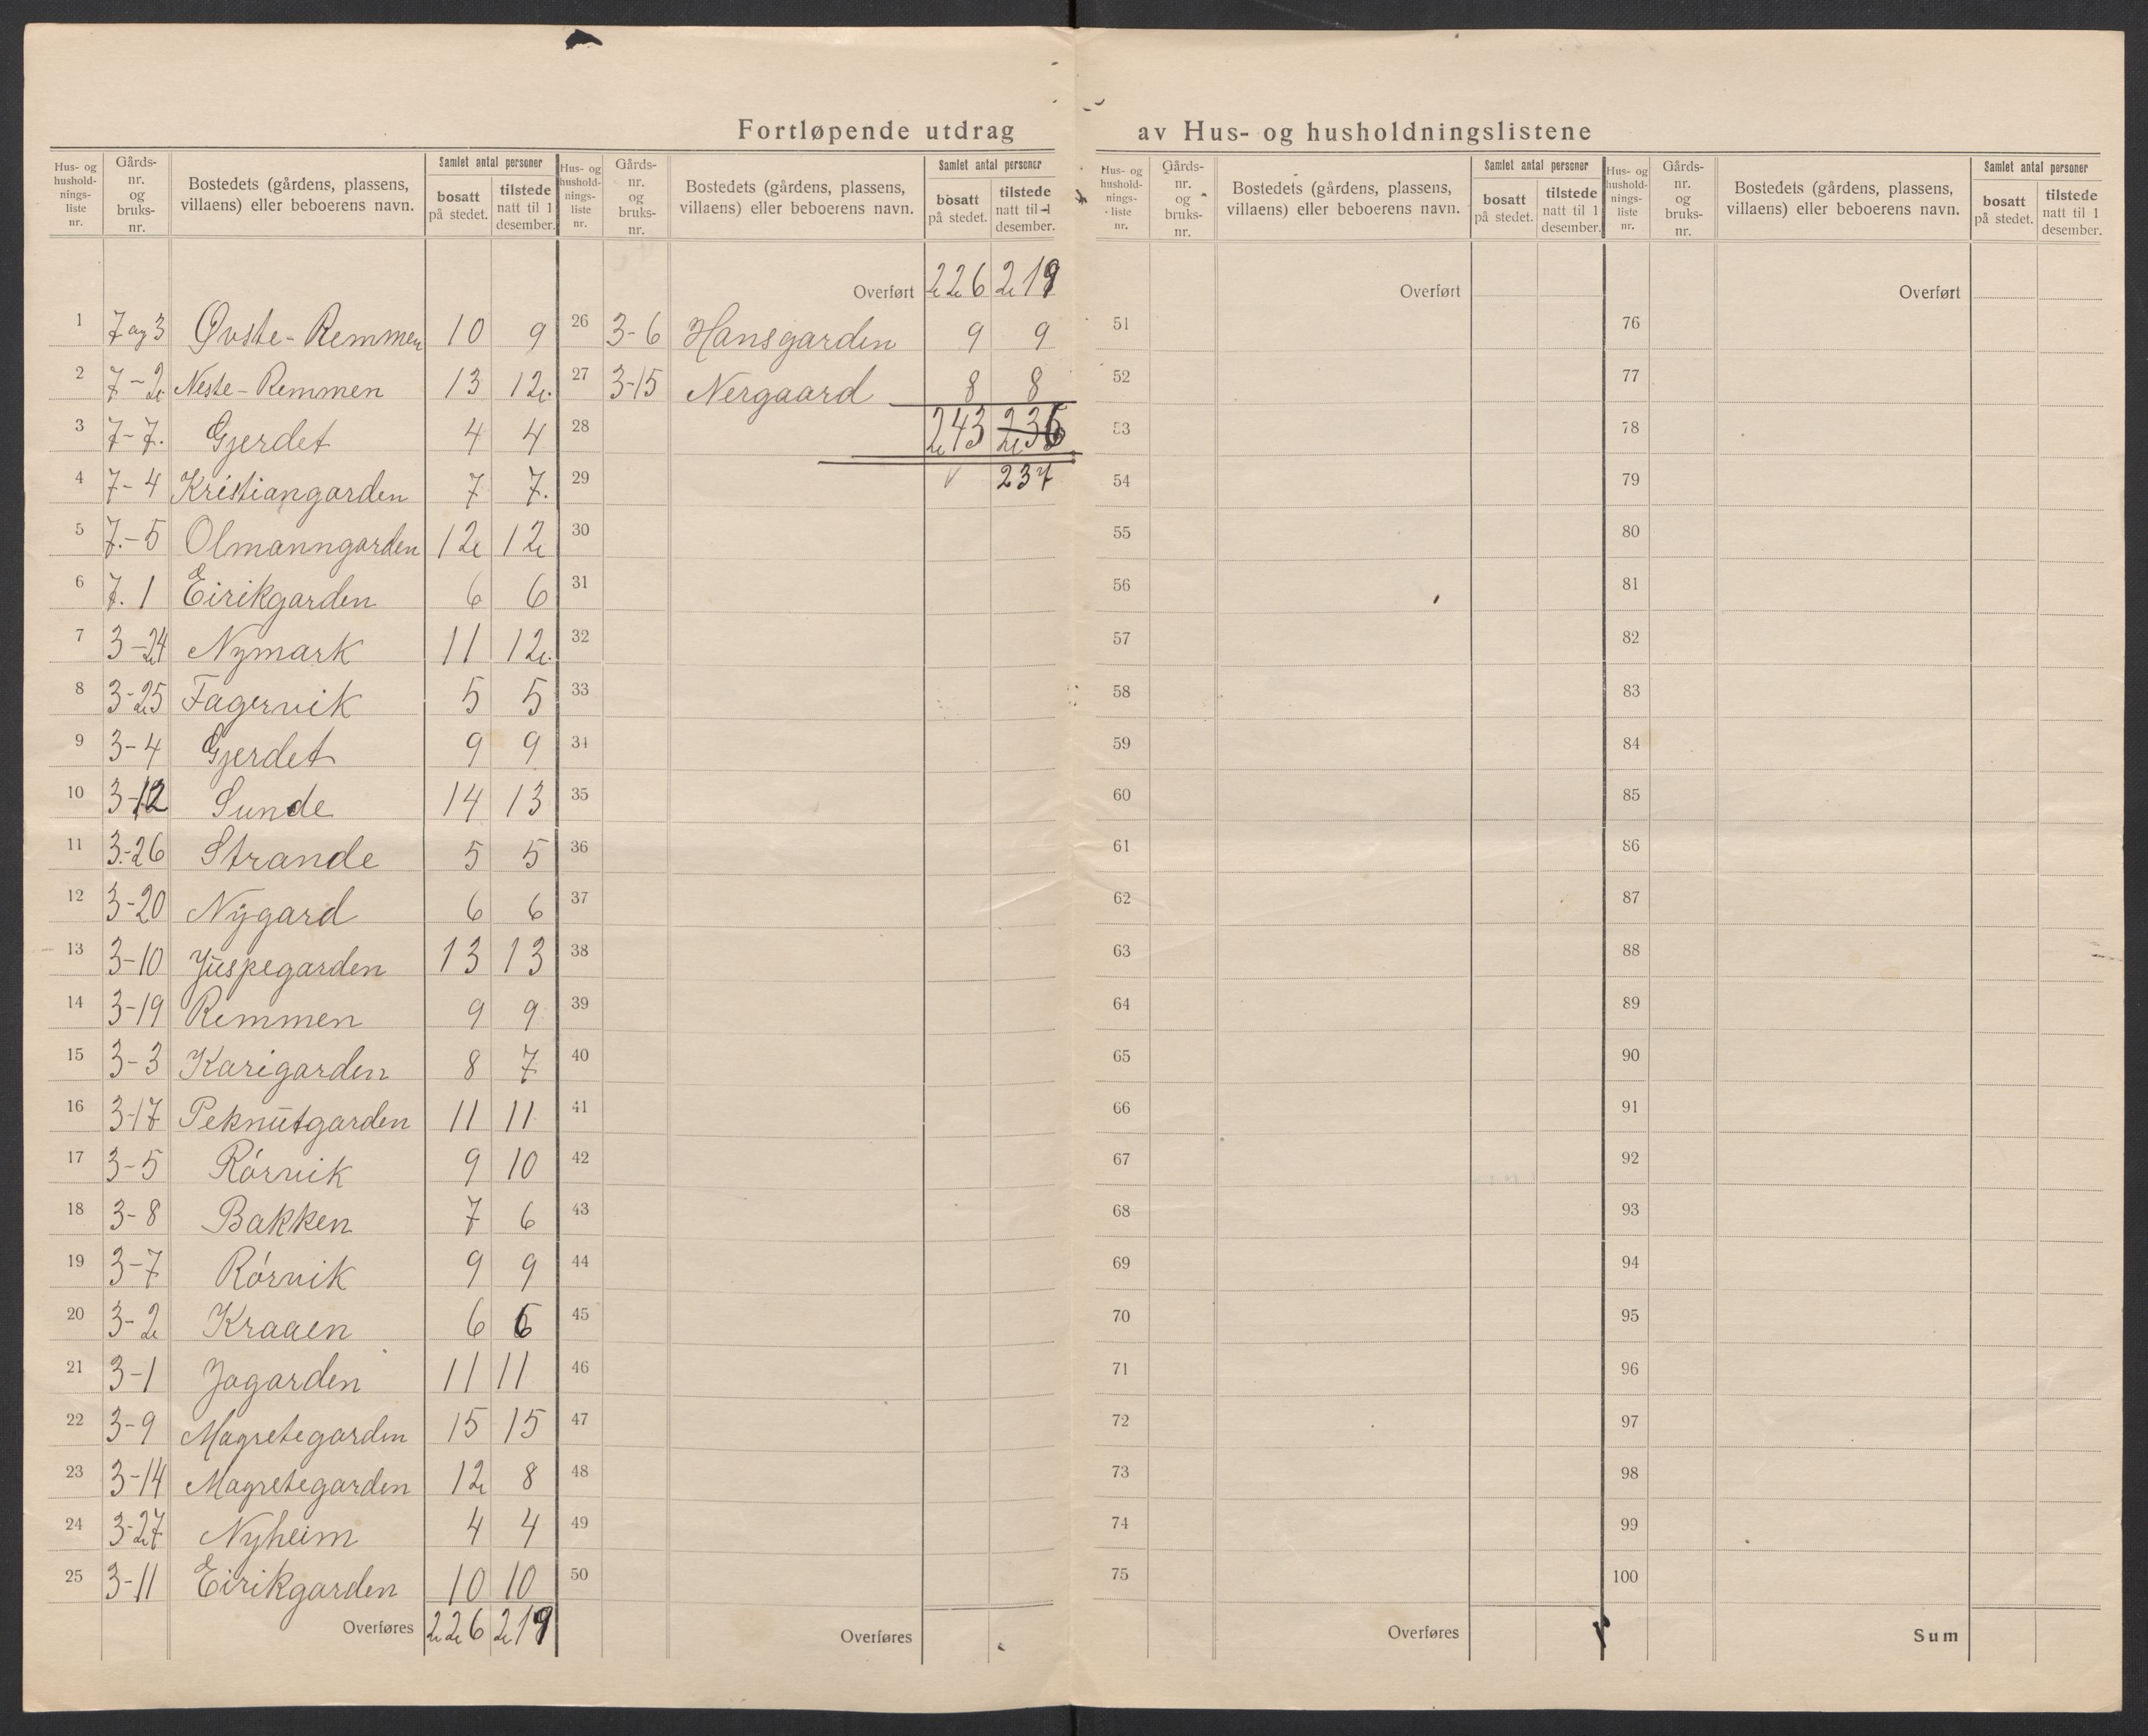 Fortløpende utdrag av Hus- og husholdningslistene
Hus- og husholdnings-liste nr. | Gårds-nr. og bruks-nr. | Bostedets (gårdens, plassens, villaens) eller beboerens navn. | Samlet antal personer | bosatt på stedet. | tilstede natt til 1 desember.
1 7 og 3 Øvste-Remmen 10 9
2 7-2 Neste-Remmen 13 12.
3 7-7. Gjerdet 4 4
4 7-4 Kristiangarden 7 7.
5 7.-5 Olmanngarden 12 12
6 7. 1 Eirikgarden 6 6
7 3-24 Nymark 11 12.
8 3-25 Fagervik 5 5
9 3-4 Gjerdet 9 9
10 3-12 Sunde 14 13
11 3.-26 Strande 5 5
12 3-20 Nygard 6 6
13 3-10 Juspegarden 13 13
14 3-19 Remmen 9 9
15 3-3 Karigarden 8 7
16 3-17 Peknutgarden 11 11
17 3-5 Rórvik 9 10
18 3-8 Bakken 7 6
19 3-7 Rórvik 9 9
20 3-2 Kraaen 6 6
21 3-1 Jogarden 11 11
22 3-9 Magretegarden 15 15
23 3-14 Magretegarden 12 8
24 3-27 Nyheim 4 4
25 3-11 Eirikgarden 10 10
Overføres 226 219
Hus- og husholdnings-liste nr. | Gårds-nr. og bruks-nr. | Bostedets (gårdens, plassens, villaens) eller beboerens navn. | Samlet antal personer | bosatt på stedet. | tilstede natt til 1 desember.
Overført 226 219
26 3-6 Hansgarden 9 9
27 3-15 Nergaard 8 8
28 243 236
29 237
30
31
32
33
34
35
36
37
38
39
40
41
42
43
44
45
46
47
48
49
50
Overføres
Hus- og hushold-nings-liste nr. | Gårds-nr. og bruks-nr. | Bostedets (gårdens, plassens, villaens) eller beboerens navn. | Samlet antal personer | bosatt på stedet. | tilstede natt til 1 desember.
Overført
51
52
53
54
55
56
57
58
59
60
61
62
63
64
65
66
67
68
69
70
71
72
73
74
75
Overføres
Hus- og hushold-nings-liste nr. | Gårds-nr. og bruks-nr. | Bostedets (gårdens, plassens, villaens) eller beboerens navn. | Samlet antal personer | bosatt på stedet. | tilstede natt til 1 desember.
Overført
76
77
78
79
80
81
82
83
84
85
86
87
88
89
90
91
92
93
94
95
96
97
98
99
100
Sum